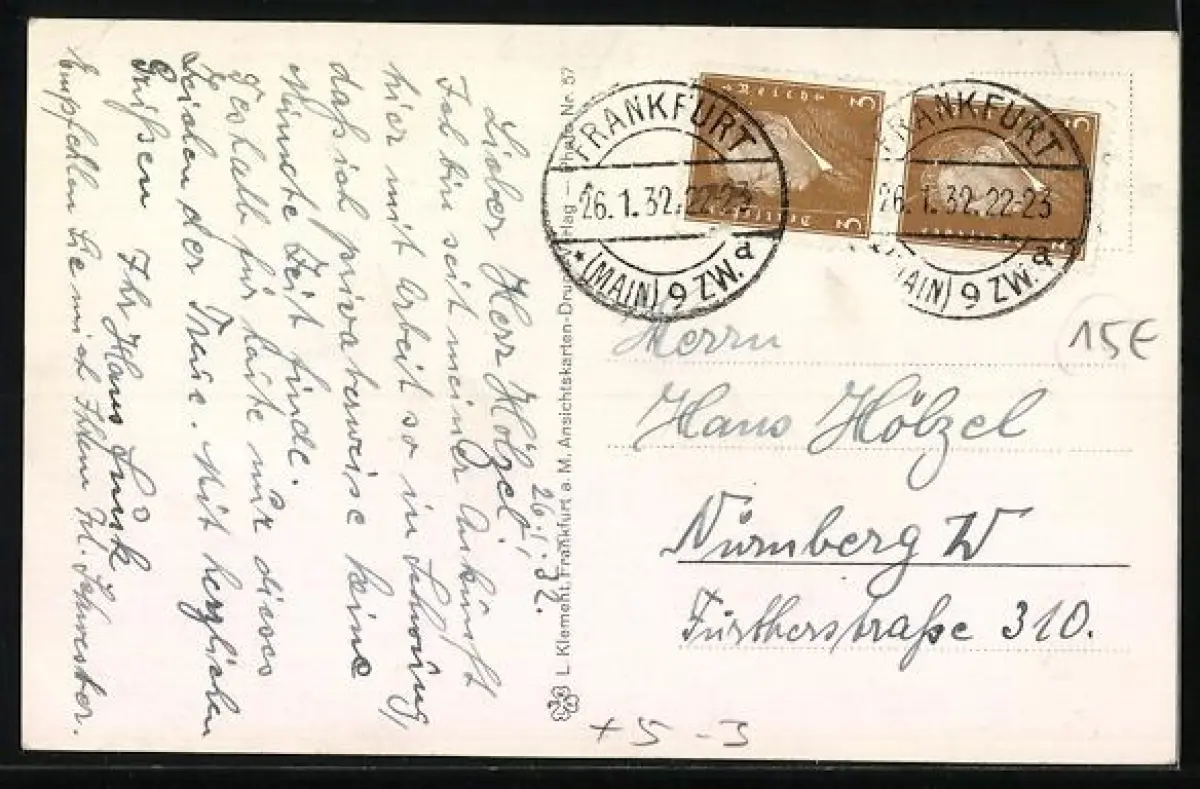 26.1.32.
Lieber Herr Hölzel!
Ich bin seit meiner Ankunft
hier mit Arbeit so in Schwung,
daß ich privaterweise keine
Minute Zeit finde.
Deshalb für heute nur dieses
Zeichen der Treue. Mit herzlichen
Grüßen Ihr Hans
Empfehlen Sie mich Ihrem Frl. Schwester.
L. Klement, Frankfurt a. M. Ansichtskarten-Druck Verlag — Photo Nr. 57
FRANKFURT
26.1.32.22-23
* (MAIN) 9 ZW. a
FRANKFURT
26.1.32.22-23
* (MAIN) 9 ZW. a
Deutsches Reich
3
3
Deutsches Reich
3
3
15€
Herrn
Hans Hölzel
Nürnberg W
Fürtherstraße 310.
+ 5 - 3